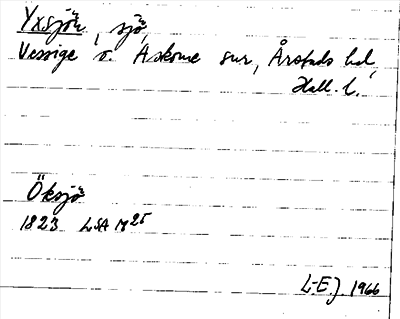 Yxsjön, sjö,
Vessige o. Askome snr, Årstads hd,
Hall. l.
Öksjö
1823 LSA N 25
L-E.J. 1966